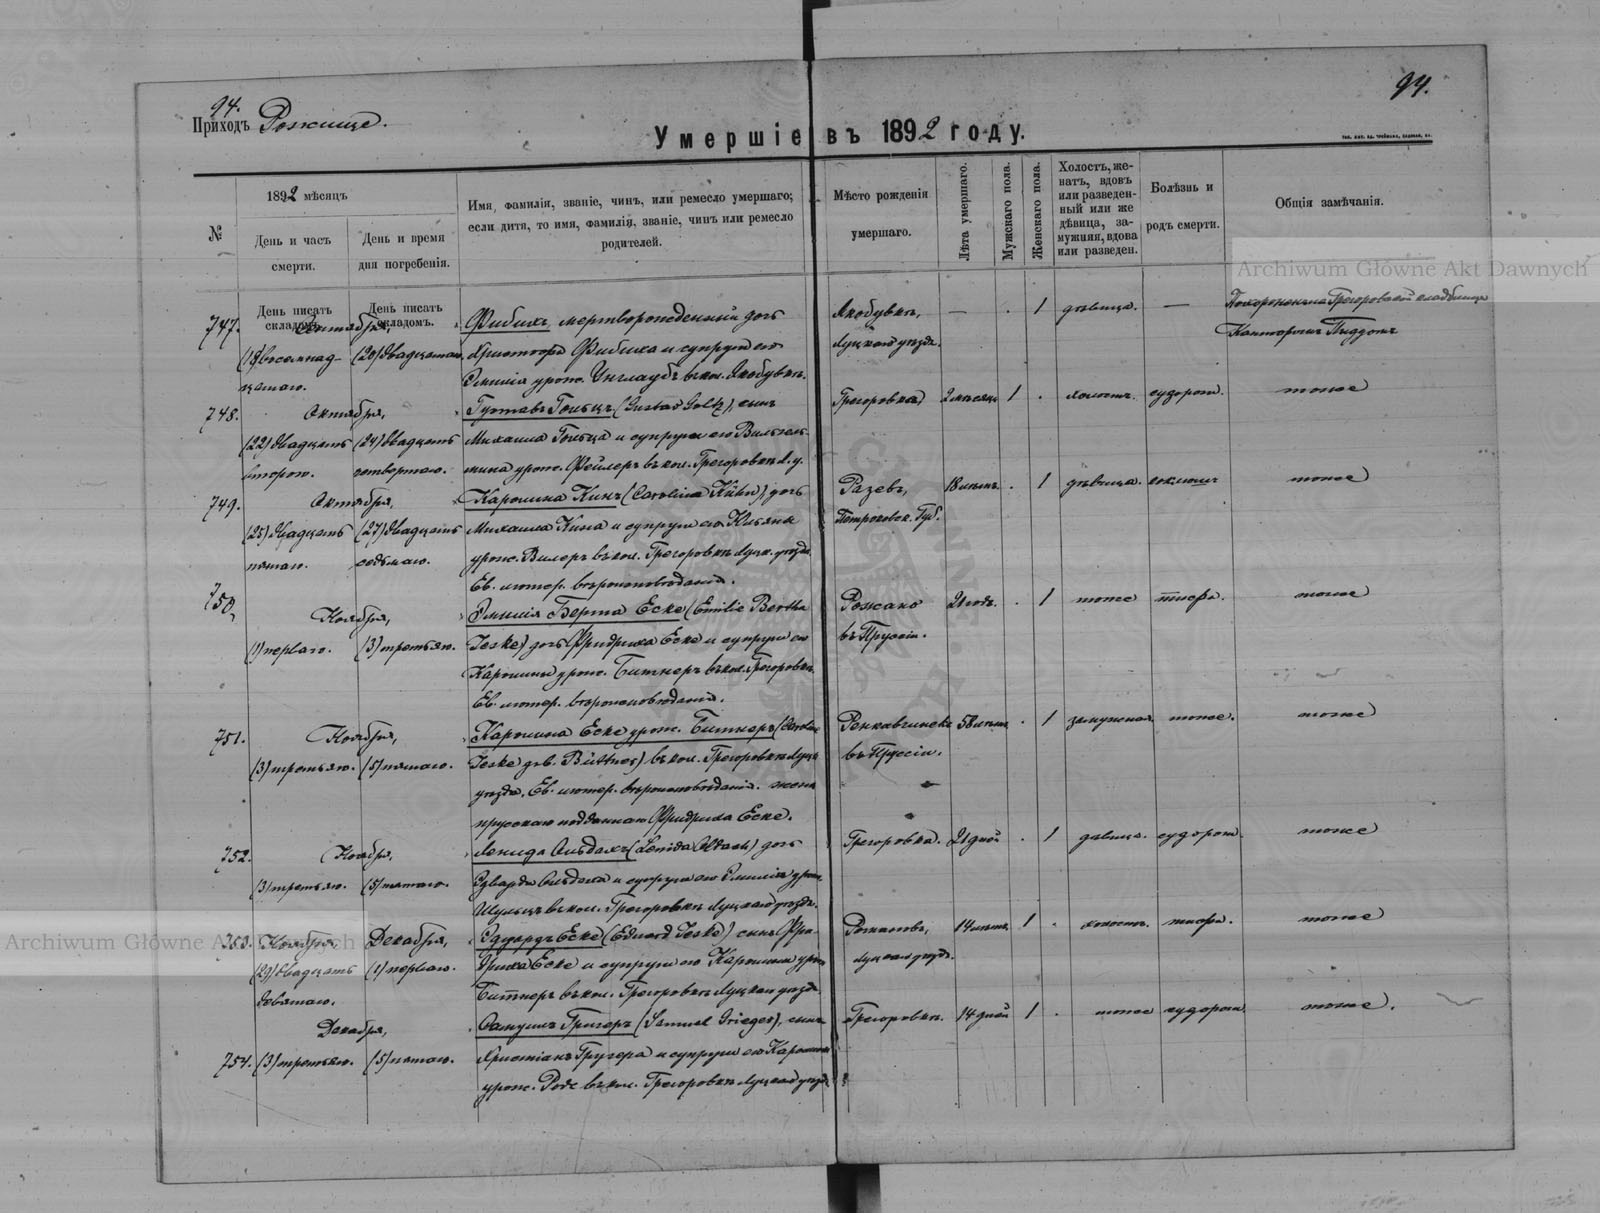 94.
94.
Приходъ Рожище.
Умершіе въ 1892 году.
№
1892 мѣсяцъ
День и часъ смерти.
День и время дня погребенія.
Имя, фамилія, званіе, чинъ, или ремесло умершаго;
если дитя, то имя, фамилія, званіе, чинъ или ремесло
родителей.
Мѣсто рожденія
умершаго.
Лѣта умершаго.
Мужскаго пола.
Женскаго пола.
Холостъ, же-
натъ, вдовъ
или разведен-
ный или же
дѣвица, за-
мужняя, вдова
или разведен.
Болѣзнь и
родъ смерти.
Общія замѣчанія.
Archiwum Główne Akt Dawnych
День писать
складомъ.
День писать
складомъ.
747.
(18) восемнад-
цатаго.
(20) двадцатаго.
Фибихъ, мертворожденный дочь
Христофа Фибиха и супруги его
Эмилія урож. въ кол. Якобувкѣ.
Якобувкѣ,
Луцкаго уѣзда.
—
.
1
дѣвица.
—
Похороненъ на Грегоровкой кладбищѣ
Канторомъ
748.
Октября,
(22) двадцать
второго.
(24) двадцать
четвертаго.
Густавъ Гольцъ (Gustav Goltz), сынъ
Михаила Гольца и супруги его Вильгель-
мина урож. Фейлеръ въ кол. Грегоровкѣ Л. у.
Грегоровкѣ
2 мѣсяца
1
.
холостъ.
судорог.
тоже
749.
Октября,
(25) двадцать
пятаго.
(27) двадцать
седьмаго.
Каролина Кинъ (Carolina Kühn), дочь
Михаила Кина и супруги его Юльяны
урож. Вилеръ въ кол. Грегоровкѣ Луцк. уѣзда.
Ев. лютер. вѣроисповѣданія.
Разевъ,
Петроковск. Губ.
18 лѣтъ.
.
1
дѣвица.
тоже
750.
Ноября,
(1) перваго.
(3) третьяго.
Эмилія Берта Еске (Emilie Bertha
Jeske) дочь Фридриха Еске и супруги его
Каролины урож. Битнеръ въ кол. Грегоровкѣ.
Ев. лютер. вѣроисповѣданія.
Рожано
въ Пруссіи.
21 годъ.
.
1
тоже
тифъ.
тоже
751.
Ноября,
(3) третьяго.
(5) пятаго.
Каролина Еске урож. Битнеръ (Carolina
Jeske дѣв. Büttner) въ кол. Грегоровкѣ Луцк.
уѣзда. Ев. лютер. вѣроисповѣданія. жена
прусскаго подданнаго Фридриха Еске.
въ Пруссіи.
58 лѣтъ
.
1
замужная.
тоже.
тоже
752.
Ноября,
(3) третьяго.
(5) пятаго.
Ленида Ольдахъ (Lenida Oldach) дочь
Эдварда Ольдаха и супруги его Эмиліи урож.
Шульцъ въ кол. Грегоровкѣ Луцкаго уѣзда.
Грегоровка.
21 дней
.
1
дѣвица.
судорог.
тоже
Archiwum Główne Akt Dawnych
753.
Ноября,
(29) двадцать
девятаго.
Декабря,
(1) перваго.
Эдуардъ Еске (Eduard Jeske) сынъ Фри-
дриха Еске и супруги его Каролины урож.
Битнеръ въ кол. Грегоровкѣ Луцкаго уѣзда.
Луцкаго уѣзда.
14 лѣтъ
1
.
холостъ.
тифъ.
тоже
754.
Декабря,
(3) третьяго.
(5) пятаго.
Самуилъ Григеръ (Samuel Grieger), сынъ
Христіанъ Григера и супруги его Каролины
урож. Роде въ кол. Грегоровкѣ Луцкаго уѣзда
Грегоровкѣ.
14 дней
1
.
тоже
судорог.
тоже.